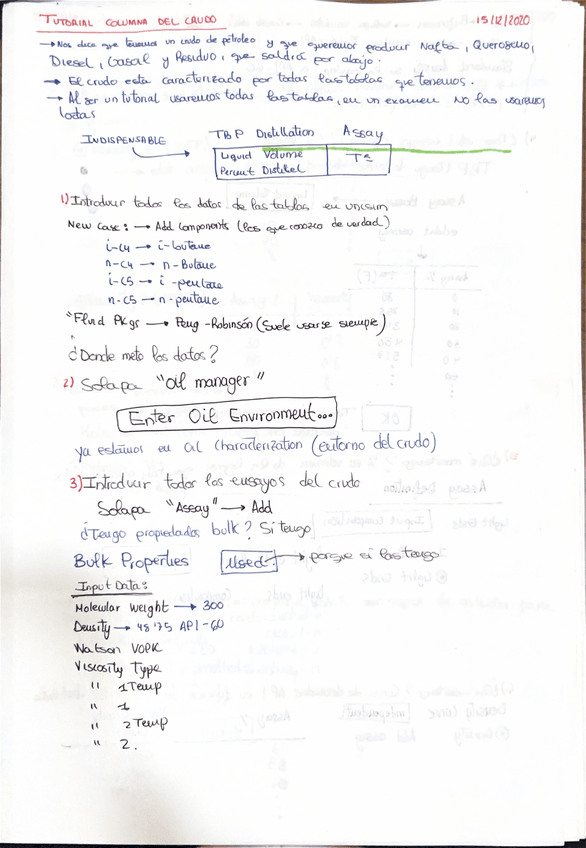 TUTORIAL COLUMNA DEL CRUDO 15/12/2020
→ Nos dice que tenemos un crudo de petroleo y que queremos producir Nafta, Queroseno,
Diesel, Gasoil y Residuo, que saldrá por abajo.
→ El crudo esta caracterizado por todas las tablas que tenemos.
→ Al ser un tutorial usaremos todas las tablas, en un examen No las usaremos
todas
INDISPENSABLE TBP Distillation Assay
Liquid Volume Tª
Percent Distilled
1) Introducir todos los datos de las tablas en unisim
New case: → Add Components (los que conozco de verdad)
i-C4 → i-butane
n-C4 → n-Butane
i-C5 → i-pentane
n-C5 → n-pentane
"Fluid Pkgs → Peng-Robinsón (Suele usarse siempre)
¿Donde meto los datos?
2) Solapa "Oil manager"
Enter Oil Environment...
ya estamos en Oil Characterization (entorno del crudo)
3) Introducir todos los ensayos del crudo
Solapa "Assay" → Add
¿Tengo propiedades bulk? Si tengo
Bulk Properties Used: → porque si las tengo
Input Data:
Molecular Weight → 300
Density → 48'75 API-60
Watson VOPK
Viscosity Type
" 1 Temp
" 1
" 2 Temp
" 2.